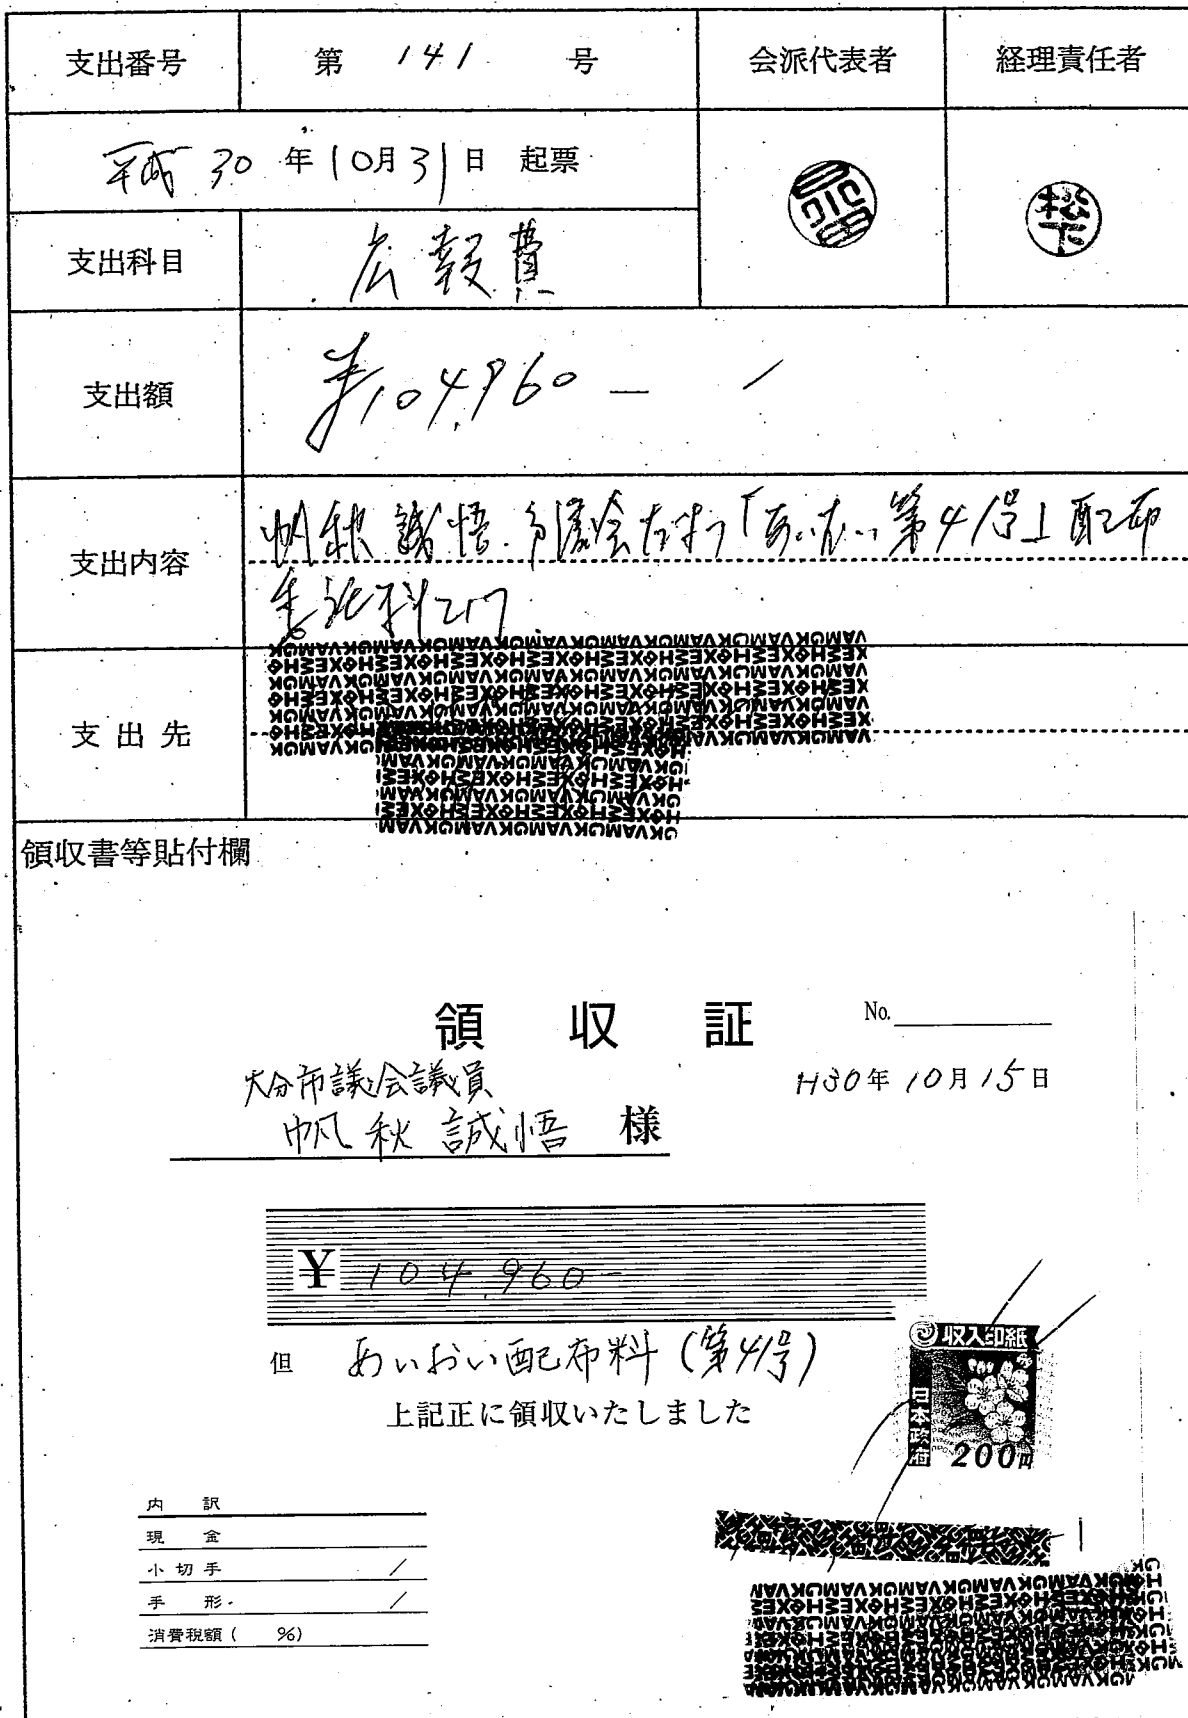 支出番号 第 141 号 会派代表者 経理責任者
平成 30 年 10月 31日 起票
松下
支出科目 広報費
支出額 ¥104,960 —
支出内容 帆秋誠悟 市議会だより「あいおい第41号」配布
委託料として
支出先
領収書等貼付欄
領収証 No.
大分市議会議員
H30年 10月 15日
帆秋誠悟 様
¥ 104,960-
但 あいおい配布料(第41号)
上記正に領収いたしました
収入印紙
日本政府
200円
内訳
現金
小切手
手形
消費税額( %)